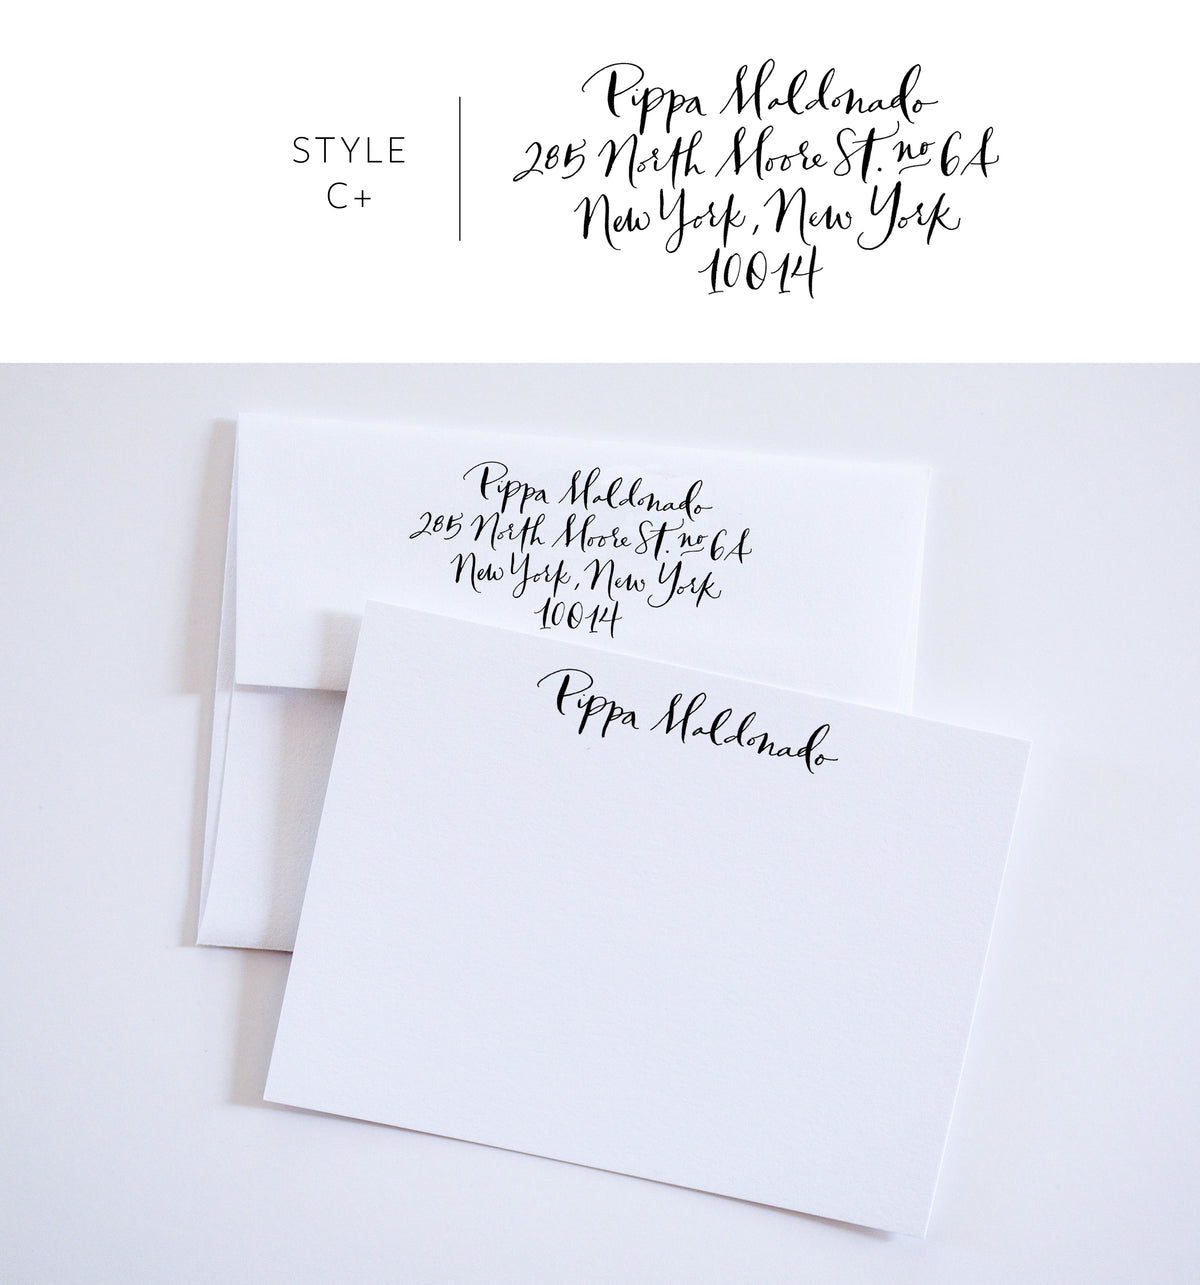 STYLE
C+
Pippa Maldonado
285 North Moore St. no 6A
New York, New York
10014
Pippa Maldonado
285 North Moore St. no 6A
New York, New York
10014
Pippa Maldonado